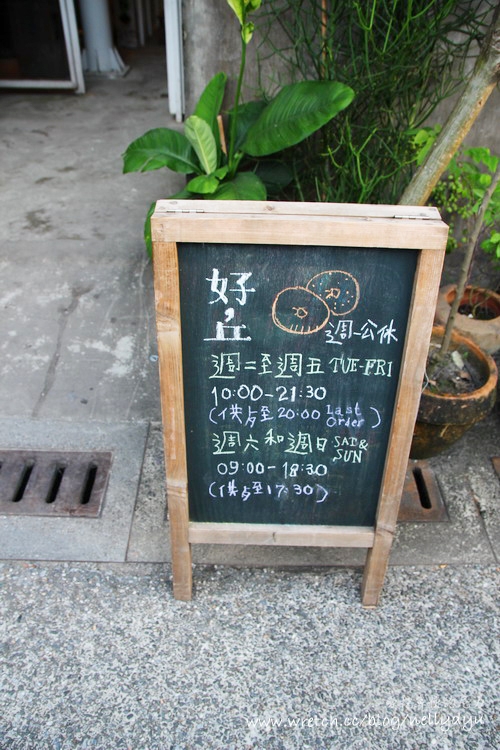 好丘
週一公休
週二至週五 TUE-FRI
10:00-21:30
(供點至20:00 Last Order)
週六和週日 SAT& SUN
09:00-18:30
(供點至17:30)
www.wretch.cc/blog/nellydyu